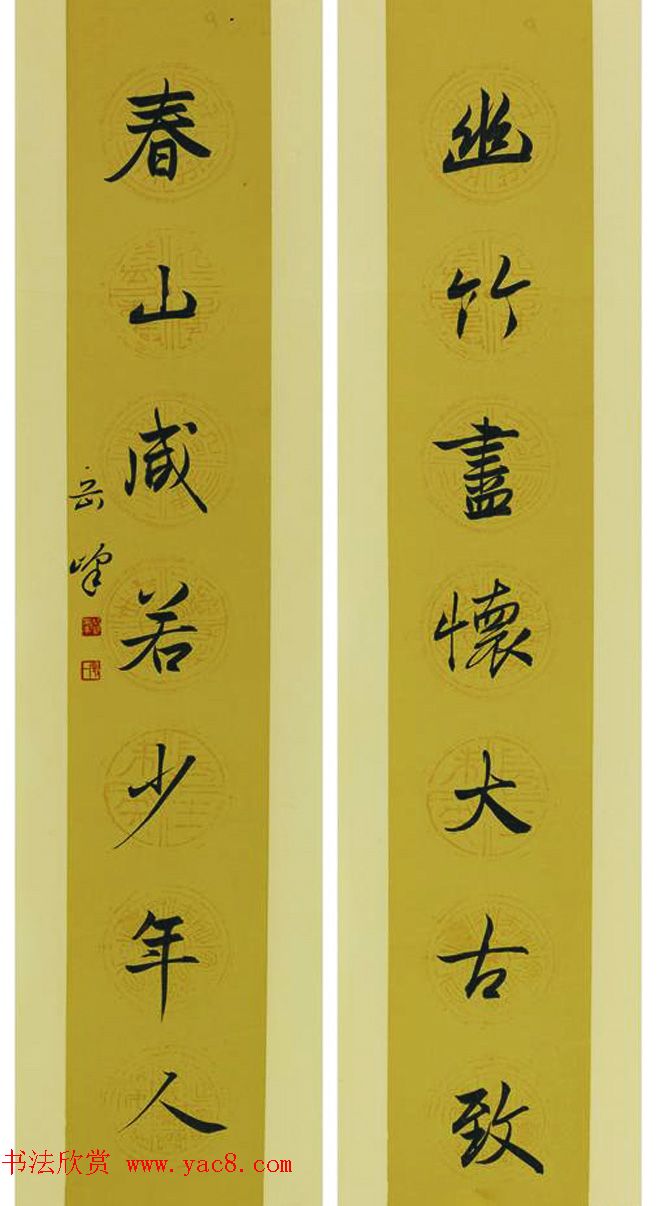 幽竹盡懷大古致
春山咸若少年人
岳峰
书法欣赏 www.yac8.com